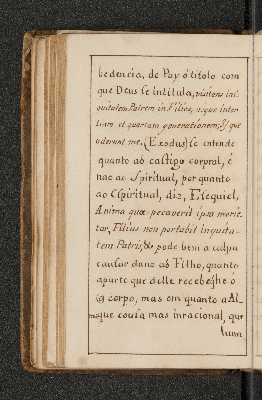 bedencia, de Pay ó titolo com
que Deus se intitula, visitans ini
quitatem Patrem in Filios, usque in ter
tiam et quartam generationem his qui
oderunt me, (Exodus) se entende
quanto ao castigo corporal, é
nao ao Spiritual, por quanto
ao Spiritual, diz, Ezequiel,
Anima quæ pecaverit ipsa morie
tur, Filius non portabit inquita-
tem Patris, & pode bem a culpa
causar dano ao Filho, quanto
aparte que delle recebeghe ó
corpo, mas em quanto a Al-
ma, que couza mas inracional, que
hum